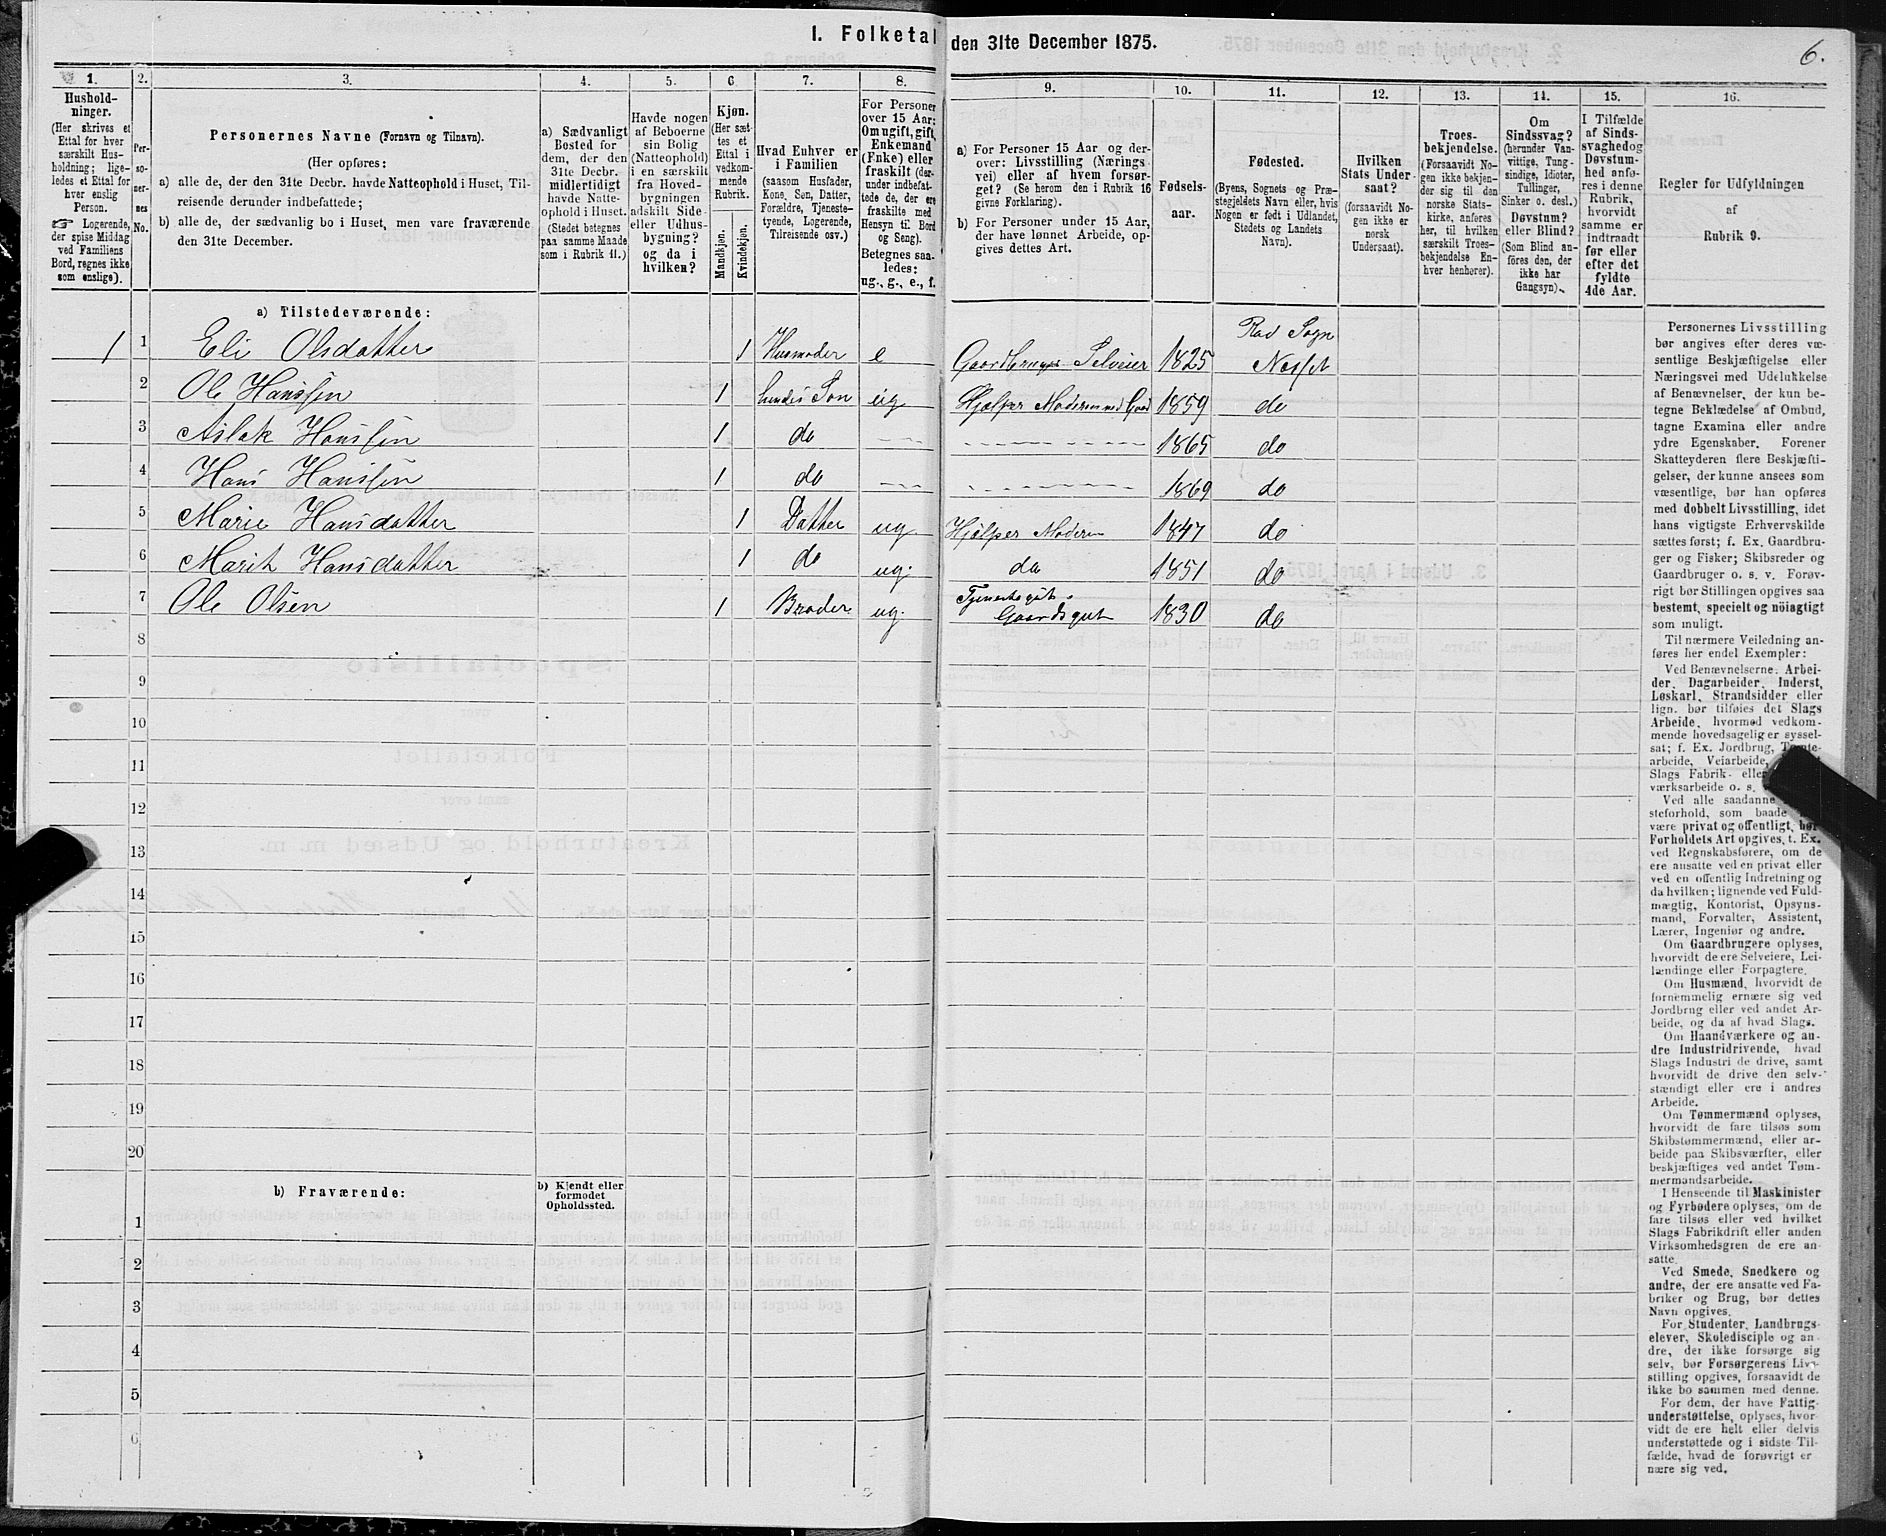 I. Folketal den 31te December 1875.
6.
1.
Hushold-
ninger.
(Her skrives et
Ettal for hver
særskilt Hus-
holdning; lige-
ledes et Ettal for
hver enslig
Person.
☞ Logerende,
der spise Middag
ved Familiens
Bord, regnes ikke
som enslige).
2.
Per-
so-
ner-
nes
No.
3.
Personernes Navne (Fornavn og Tilnavn).
(Her opføres:
a) alle de, der den 31te Decbr. havde Natteophold i Huset, Til-
reisende derunder indbefattede;
b) alle de, der sædvanlig bo i Huset, men vare fraværende
den 31te December.
4.
a) Sædvanligt
Bosted for
dem, der den
31te Decbr.
midlertidigt
havde Natte-
ophold i Huset.
(Stedet betegnes
paa samme Maade
som i Rubrik 11.)
5.
Havde nogen
af Beboerne
sin Bolig
(Natteophold)
i en særskilt
fra Hoved-
bygningen
adskilt Side-
eller Udhus-
bygning?
og da i
hvilken?
6.
Kjøn.
(Her sæt-
tes et
Ettal i
vedkom-
mende
Rubrik.
Mandkjøn.
Kvindekjøn.
7.
Hvad Enhver er
i Familien
(saasom Husfader,
Kone, Søn, Datter,
Forældre, Tjeneste-
tyende, Logerende,
Tilreisende osv.)
8.
For Personer
over 15 Aar:
Om ugift, gift,
Enkemand
(Enke) eller
fraskilt (der-
under indbefat-
tede de, der ere
fraskilte med
Hensyn til Bord
og Seng).
Betegnes saa-
ledes:
ug., g., e., f.
9.
a) For Personer 15 Aar og der-
over: Livsstilling (Nærings-
vei) eller af hvem forsør-
get? (Se herom den i Rubrik 16
givne Forklaring).
b) For Personer under 15 Aar,
der have lønnet Arbeide, op-
gives dettes Art.
10.
Fødsels-
aar.
11.
Fødested.
(Byens, Sognets og Præ-
stegjeldets Navn eller, hvis
Nogen er født i Udlandet,
Stedets og Landets
Navn).
12.
Hvilken
Stats Under-
saat?
(forsaavidt No-
gen ikke er
norsk
Undersaat).
13.
Troes-
bekjendelse.
(Forsaavidt No-
gen ikke bekjen-
der sig til den
norske Stats-
kirke, anføres
her, til hvilken
særskilt Troes-
bekjendelse En-
hver henhører).
14.
Om
Sindssvag?
(herunder Van-
vittige, Tung-
sindige, Idioter,
Tullinger,
Sinker o. desl.)
Døvstum?
eller Blind?
(Som Blind an-
føres den, der
ikke har
Gangsyn).
15.
I Tilfælde
af Sinds-
svaghed og
Døvstum-
hed anfø-
res i denne
Rubrik,
hvorvidt
samme er
indtraadt
før eller
efter det
fyldte
4de Aar.
16.
Regler før Udfyldningen
af
Rubrik 9.
a) Tilstedeværende:
1 1 Eli Olsdatter 1 Husmoder e Gaardbruger Selveier 1825 Rød Sogn Nesset
2 Ole Hanssøn 1 hendes Søn ug Hjælper Moderen med Gaard 1859 do
3 Aslak Hanssøn 1 do 1865 do
4 Hans Hanssøn 1 do 1869 do
5 Marie Hansdatter 1 Datter ug Hjælper Moderen 1847 do
6 Marit Hansdatter 1 do ug. do 1851 do
7 Ole Olsen 1 Broder ug. Tjenestegut. Gaardsgut 1830 do
8
9
10
11
12
13
14
15
16
17
18
19
20
b) Fraværende:
b) Kjendt eller
formodet
Opholdssted.
1
2
3
4
5
6
Personernes Livsstilling
bør angives efter deres væ-
sentlige Beskjæftigelse eller
Næringsvei med Udelukkelse
af Benævnelser, der kun be-
tegne Beklædelse af Ombud,
tagne Examina eller andre
ydre Egenskaber. Forener
Skatteyderen flere Beskjæfti-
gelser, der kunne ansees som
væsentlige, bør han opføres
med dobbelt Livsstilling, idet
hans vigtigste Erhvervskilde
sættes først; f. Ex. Gaardbru-
ger og Fisker; Skibsreder og
Gaardbruger o. s. v. Forøv-
rigt bør Stillingen opgives saa
bestemt, specielt og nöiagtigt
som muligt.
Til nærmere Veiledning an-
føres her endel Exempler:
Ved Benævnelserne: Arbei-
der, Dagarbeider, Inderst,
Løskarl, Strandsidder eller
lign. bør tilføies det Slags
Arbeide, hvormed vedkom-
mende hovedsagelig er syssel-
sat; f. Ex. Jordbrug, Tomte-
arbeide, Veiarbeide,
Slags Fabrik- eller
værksarbeide o. s. v.
Ved alle saadanne
steforhold, som baade
være privat og offentligt, bør
Forholdets Art opgives, t. Ex.
ved Regnskabsførere, om de
ere ansatte ved en privat eller
ved en offentlig Indretning og
da hvilken; lignende ved Fuld-
mægtig, Kontorist, Opsyns-
mand, Forvalter, Assistent,
Lærer, Ingeniør og andre.
Om Gaardbrugere oplyses,
hvorvidt de ere Selveiere, Lei-
lændinge eller Forpagtere.
Om Husmænd, hvorvidt de
fornemmelig ernære sig ved
Jordbrug eller ved andet Ar-
beide, og da af hvad Slags.
Om Haandværkere og an-
dre Industridrivende, hvad
Slags Industri de drive, samt
hvorvidt de drive den selv-
stændigt eller ere i andres
Arbeide.
Om Tømmermænd oplyses,
hvorvidt de fare tilsøs som
Skibstømmermænd, eller ar-
beide paa Skibsværfter, eller
beskjæftiges ved andet Tøm-
mermandsarbeide.
I Henseende til Maskinister
og Fyrbødere oplyses, om de
fare tilsøs eller ved hvilket
Slags Fabrikdrift eller anden
Virksomhedsgren de ere an-
satte.
Ved Smede, Snedkere og
andre, der ere ansatte ved Fa-
briker og Brug, bør dettes
Navn opgives.
For Studenter, Landbrugs-
elever, Skoledisciple og an-
dre, der ikke forsørge sig
selv, bør Forsørgerens Livs-
stilling opgives, forsaavidt de
ikke bo sammen med denne.
For dem, der have Fattig-
understøttelse, oplyses, hvor-
vidt de ere helt eller delvis
understøttede og i sidste Til-
fælde, hvad de forøvrigt er
nære sig ved.